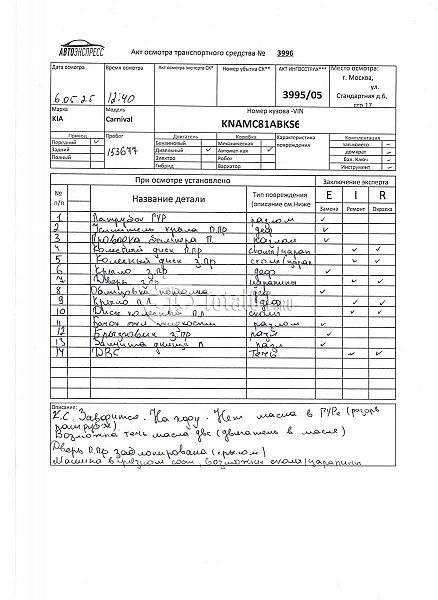 АВТОЭКСПРЕСС
Акт осмотра транспортного средства № 3996
Дата осмотра Время осмотра Акт осмотра эксперта СК* Номер убытка СК** АКТ ИНГОССТРАХ*** Место осмотра:
6.05.25 12:40 3995/05 г. Москва, ул. Стандартная д.6, стр.17
Марка Модель Номер кузова -VIN
KIA Carnival KNAMC81ABKS6
Привод Пробег Двигатель Коробка Характеристика повреждения Комплектация
Передний ✓ 153677 Бензиновый Механическая зап.колесо
Задний Дизельный ✓ Автомат-кая ✓ домкрат
Полный Электро Робот бал. Ключ
Гибрид Вариатор Инструмент
При осмотре установлено Заключение эксперта
№ п/п Название детали Тип повреждения (описание см.Ниже E I R
Замена Ремонт Окраска
1 Патрубок ГУР разлом ✓
2 крыла П.Пр деф ✓
3 Проводка П. разлом ✓
4 Колесный диск П.Пр сколы/царап ✓ ✓
5 Колесный диск З.Пр сколы/царап ✓ ✓
6 Крыло З.Пр деф ✓
7 Дверь З.Пр царапины ✓ ✓
8 Обшивка потолка деф ✓
9 Крыло П.Л деф ✓ ✓
10 Диск колесный П.Пр сколы ✓ ✓
11 Бачок жидкости разлом ✓
12 Брызговик З.Пр разл ✓
13 Защита днища П разл ✓
14 ДВС Течь ✓ ✓
Описание:
К.С. Заводится. На ходу. Нет масла в ГУРе (
патрубок)
Возможна течь масла двс (двигатель в масле)
Дверь П.Пр заблокирована (крылом)
Машина в грязном сост, возможны сколы/царапины